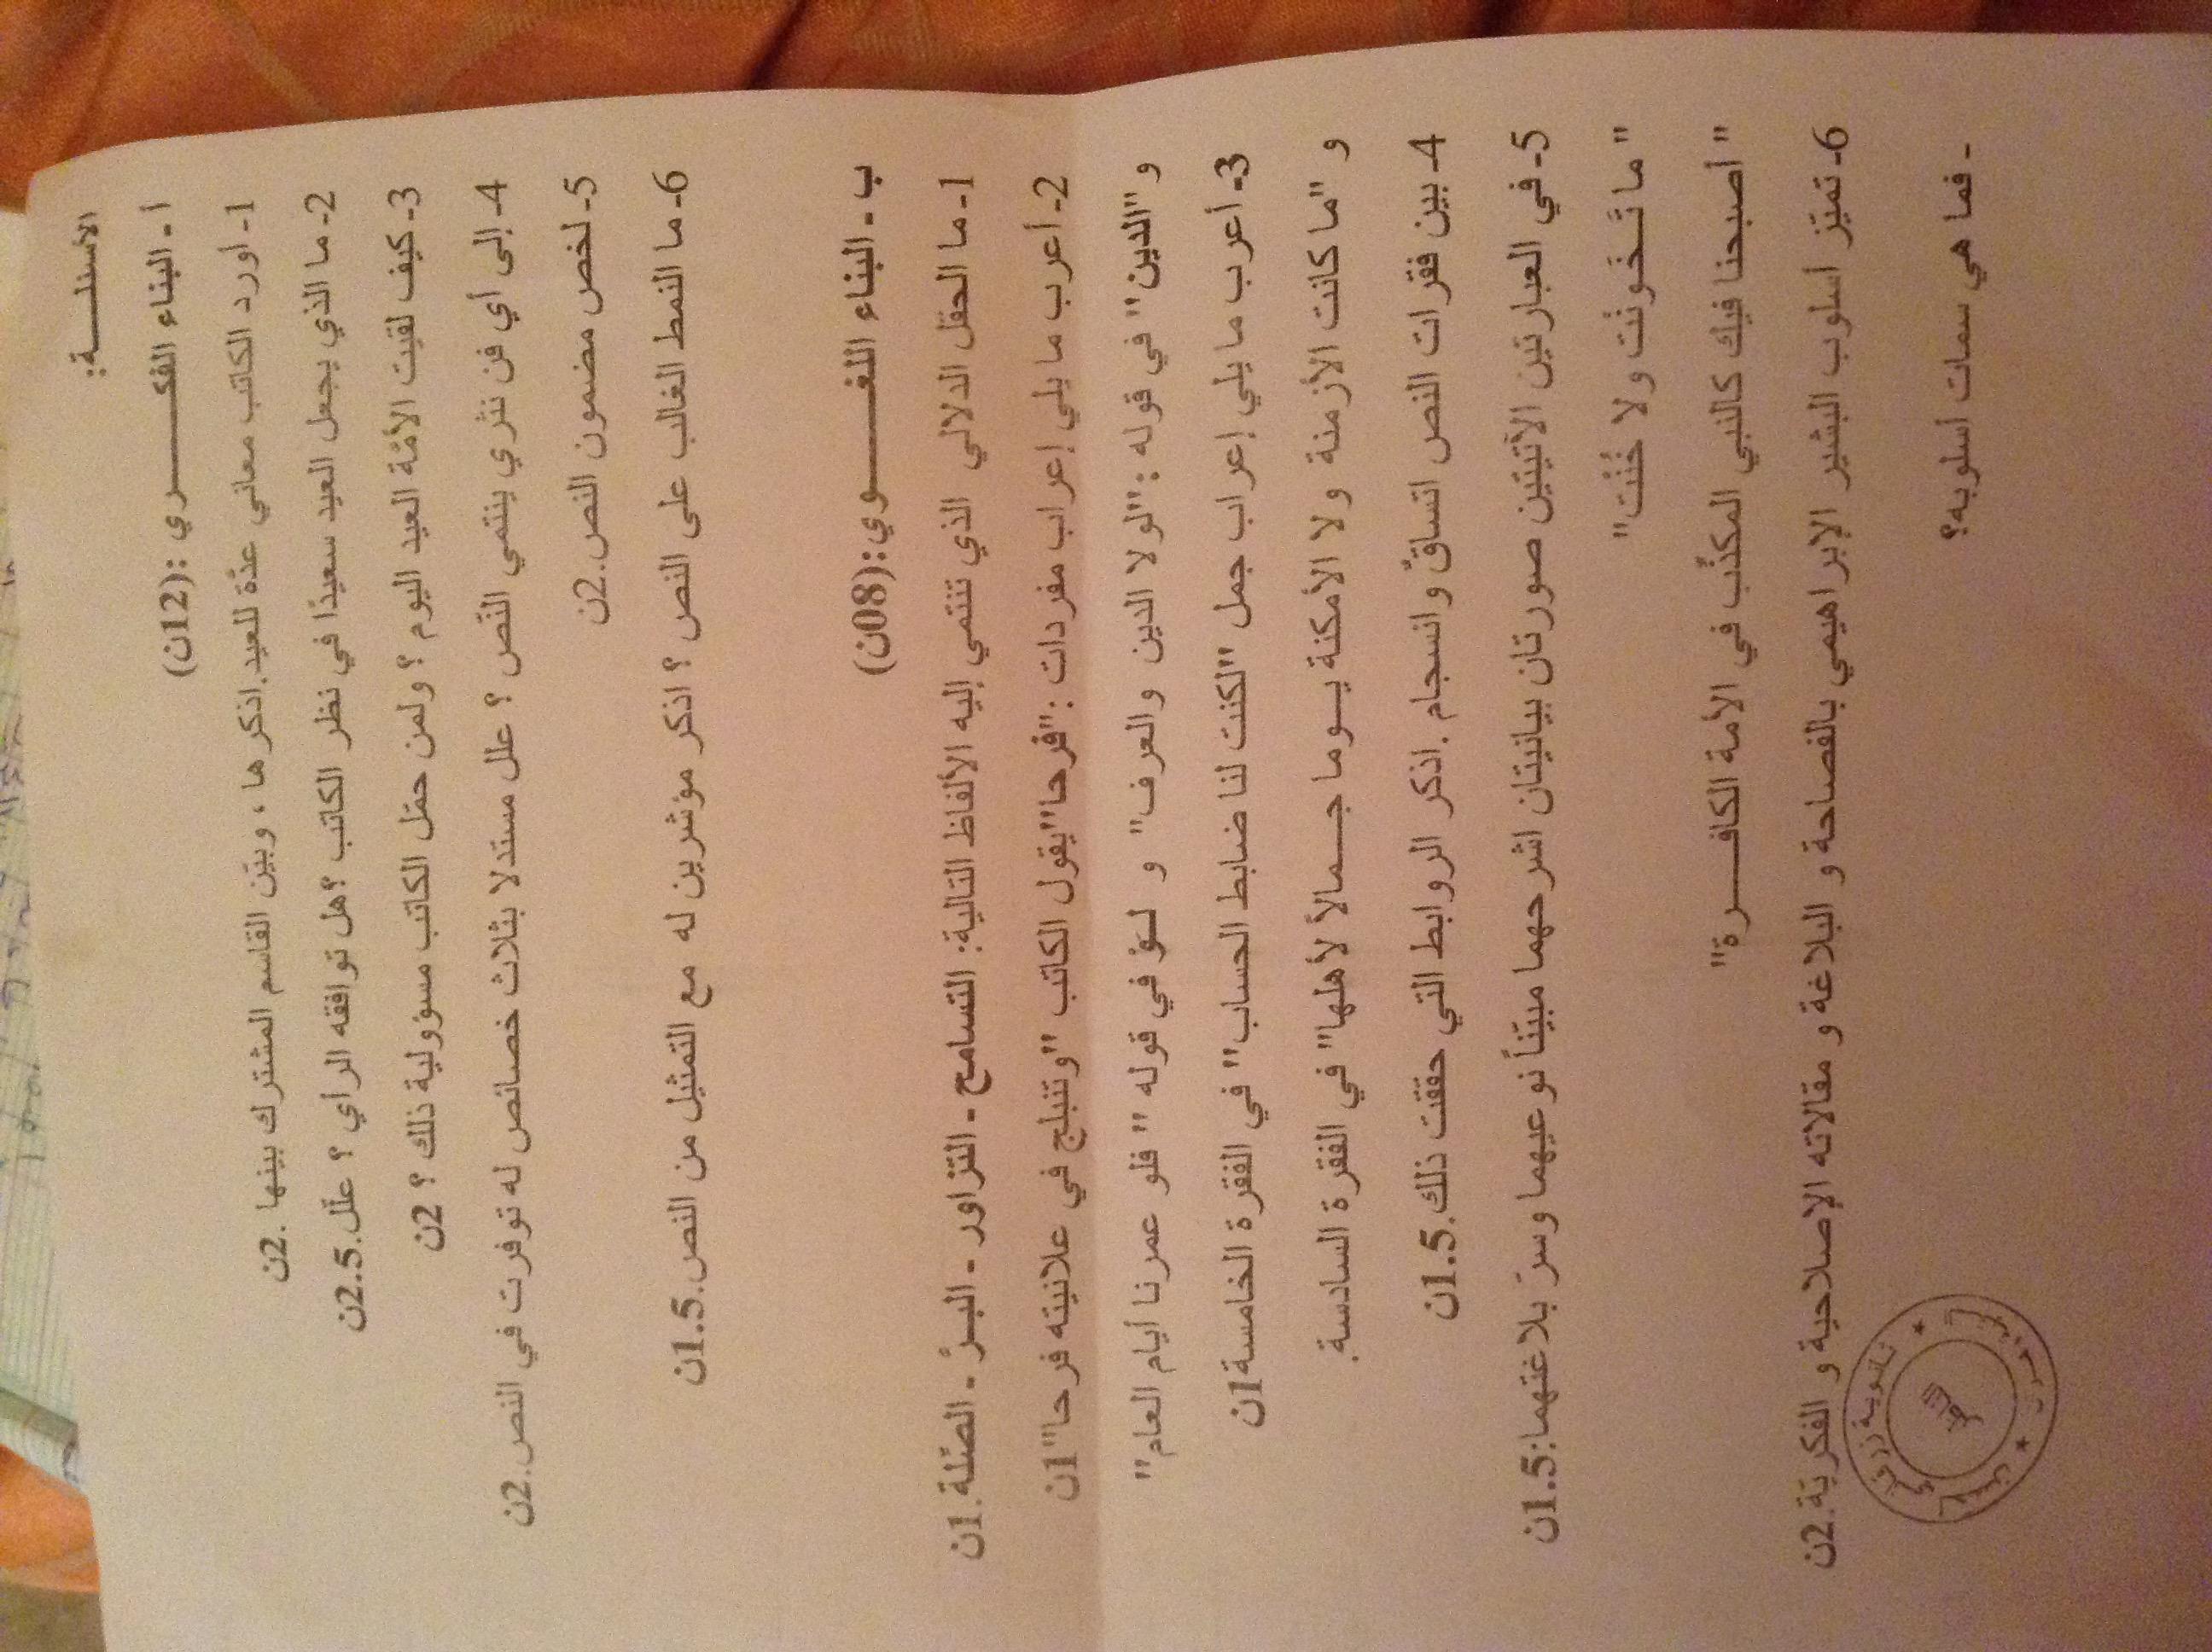 الأسئلــــة:
أ - البناء الفكــــــري :(12ن)
1- أورد الكاتب معاني عدّة للعيد.اذكرها ، وبيّن القاسم المشترك بينها .2ن
2- ما الذي يجعل العيد سعيدًا في نظر الكاتب ؟هل توافقه الرأي ؟ علّل.2.5ن
3- كيف لقيت الأمّة العيد اليوم ؟ ولمن حمّل الكاتب مسؤولية ذلك ؟ 2ن
4- إلى أي فن نثري ينتمي النّص ؟ علل مستدلا بثلاث خصائص له توفرت في النص.2ن
5- لخص مضمون النص.2ن
6- ما النمط الغالب على النص ؟ اذكر مؤشرين له مع التمثيل من النص.1.5ن
ب - البناء اللغــــــوي:(08ن)
1- ما الحقل الدلالي الذي تنتمي إليه الألفاظ التالية: التسامح - التزاور - البـرّ - الصّلة.1ن
2- أعرب ما يلي إعراب مفردات :"فرحا"يقول الكاتب "وتنبلج في علانيته فرحا"1ن
و"الدين" في قوله :"لولا الدين والعرف" و لـوْ في قوله " فلو عمرنا أيام العام"
3- أعرب ما يلي إعراب جمل "لكنت لنا ضابط الحساب" في الفقرة الخامسة1ن
و "ما كانت الأزمنة ولا الأمكنة يــوما جــمالاً لأهلها" في الفقرة السادسة.
4- بين فقرات النص اتساقٌ وانسجام .اذكر الروابط التي حققت ذلك.1.5ن
5- في العبارتين الآتيتين صورتان بيانيتان اشرحهما مبيّناً نوعيهما وسرّ بلاغتهما:1.5ن
" ما تَـخَونْت ولا خُنْت"
" أصبحنا فيك كالنبي المكذّب في الأمة الكافــــرة"
6- تميّز أسلوب البشير الإبراهيمي بالفصاحة و البلاغة و مقالاته الإصلاحية و الفكريّة.2ن
- فما هي سمات أسلوبه؟